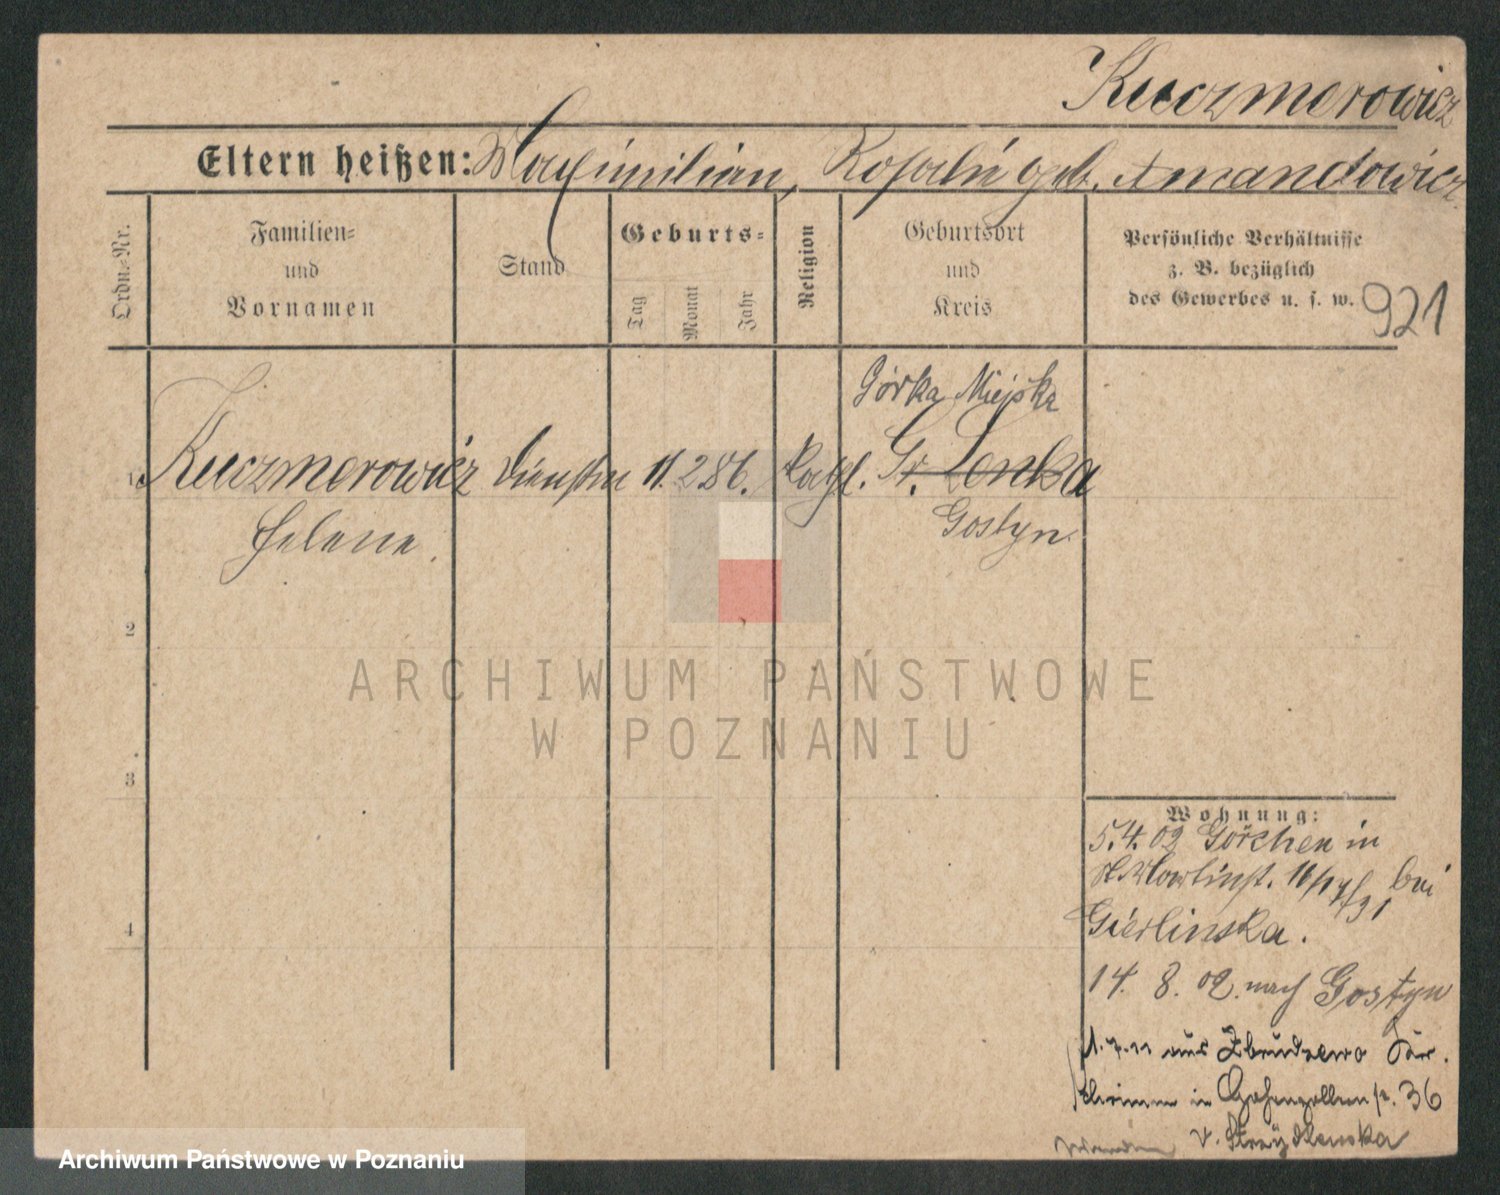 Kuczmerowicz
Eltern heißen: Maximilian, Rosalie geb. Amandowicz.
Ordn.-Nr.
Familien=
und
Vornamen
Stand
Geburts=
Tag
Monat
Jahr
Religion
Geburtsort
und
Kreis
Persönliche Verhältnisse
z. B. bezüglich
des Gewerbes u. s. w.
921
Górka Miejska
1 Kuczmerowicz Dienstm 11. 2 86. kathl. Gr. Lenka
Helene. Gostyn.
2
3
4
Wohnung:
5.4.02 Görchen in
bei
Gierlinska.
14. 8. 02. nach Gostyn
1.7.11 aus Zbrudzewo Kr.
Schrimm in Hohenzollernstr. 36
v. Stray
ARCHIWUM PAŃSTWOWE
W POZNANIU
Archiwum Państwowe w Poznaniu